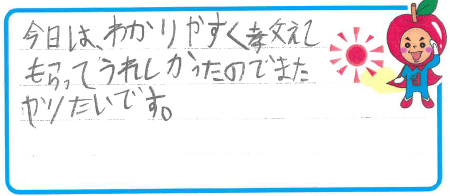 今日は、わかりやすく教えて
もらってうれしかったのでまた
やりたいです。